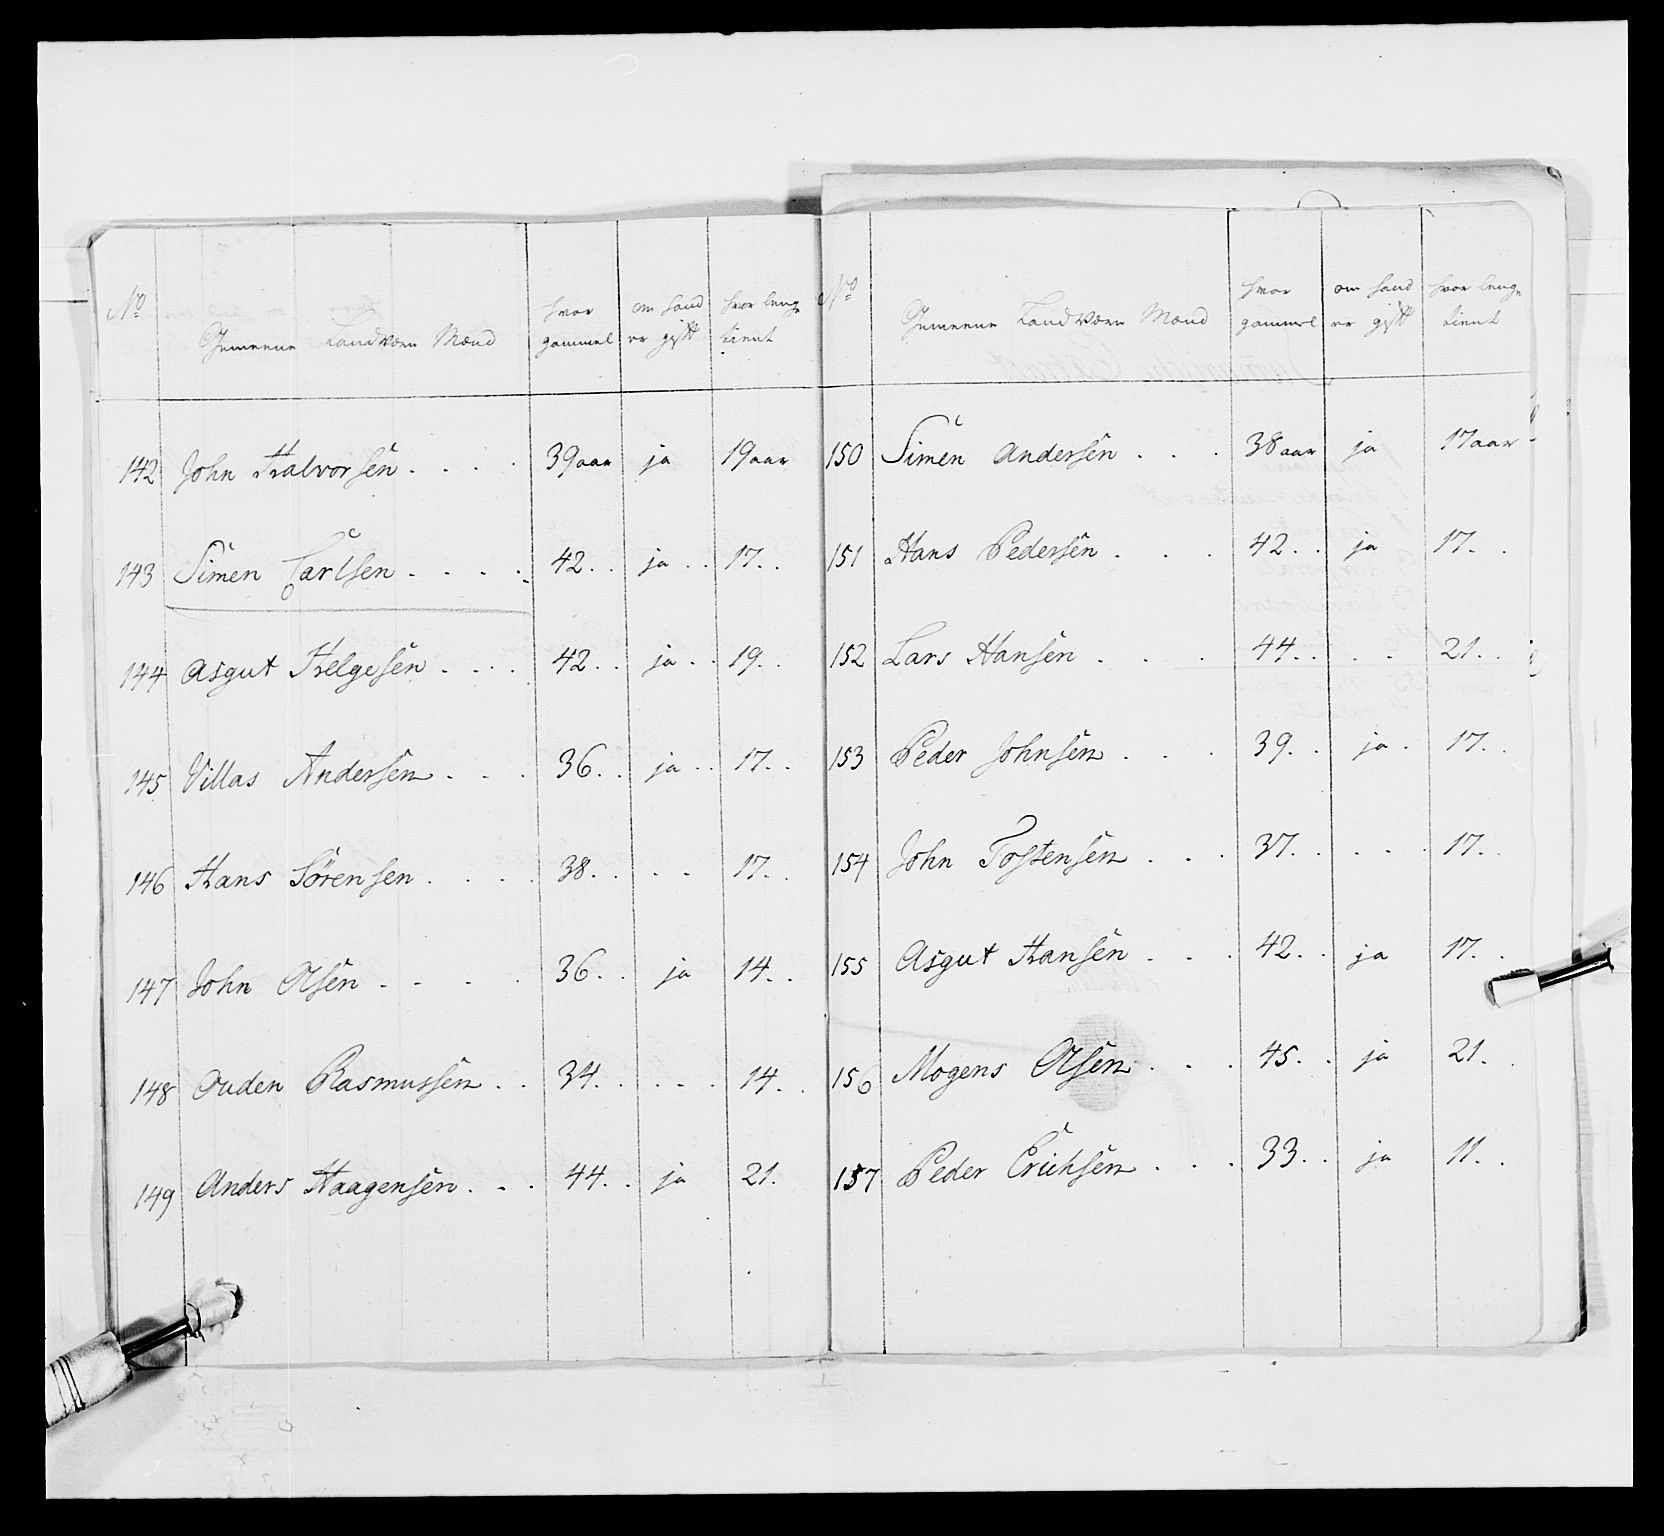 No
Gemeene Landværn Mænd
hvor gammel
om hand er gift
hvor lenge tient
142 John Halvorsen . . . . 39 aar ja 19 aar
143 Simen Carlsen . . . . 42 . . ja . . 17 . .
144 Asgut Helgesen . . . . 42 . . ja . . 19 . .
145 Villas Andersen . . . 36 . . ja . . 17 . .
146 Hans Sörensen . . . . 38 . . . . 17 . .
147 John Olsen . . . . 36 . . ja 14 . .
148 Ouden Rasmussen . . 34 . . . . . 14 . .
149 Anders Haagensen . . . 44 . . ja 21 .
No
Gemeene Landværn Mænd
hvor gammel
om hand er gift
hvor lenge tient
150 Simen Andersen . . . 38 aar ja 17 aar
151 Hans Pedersen . . . 42 . . ja 17 . .
152 Lars Hansen . . . 44 . . . . 21 . .
153 Peder Johnsen . . . 39 . . ja . 17 . .
154 John Tostensen . . . 37 . . . . . 17 . .
155 Asgut Hansen . . . 42 . . ja 17 . .
156 Mogens Olsen . . . 45 . . ja 21 . .
157 Peder Erichsen . . . 33 . . ja 11 . .